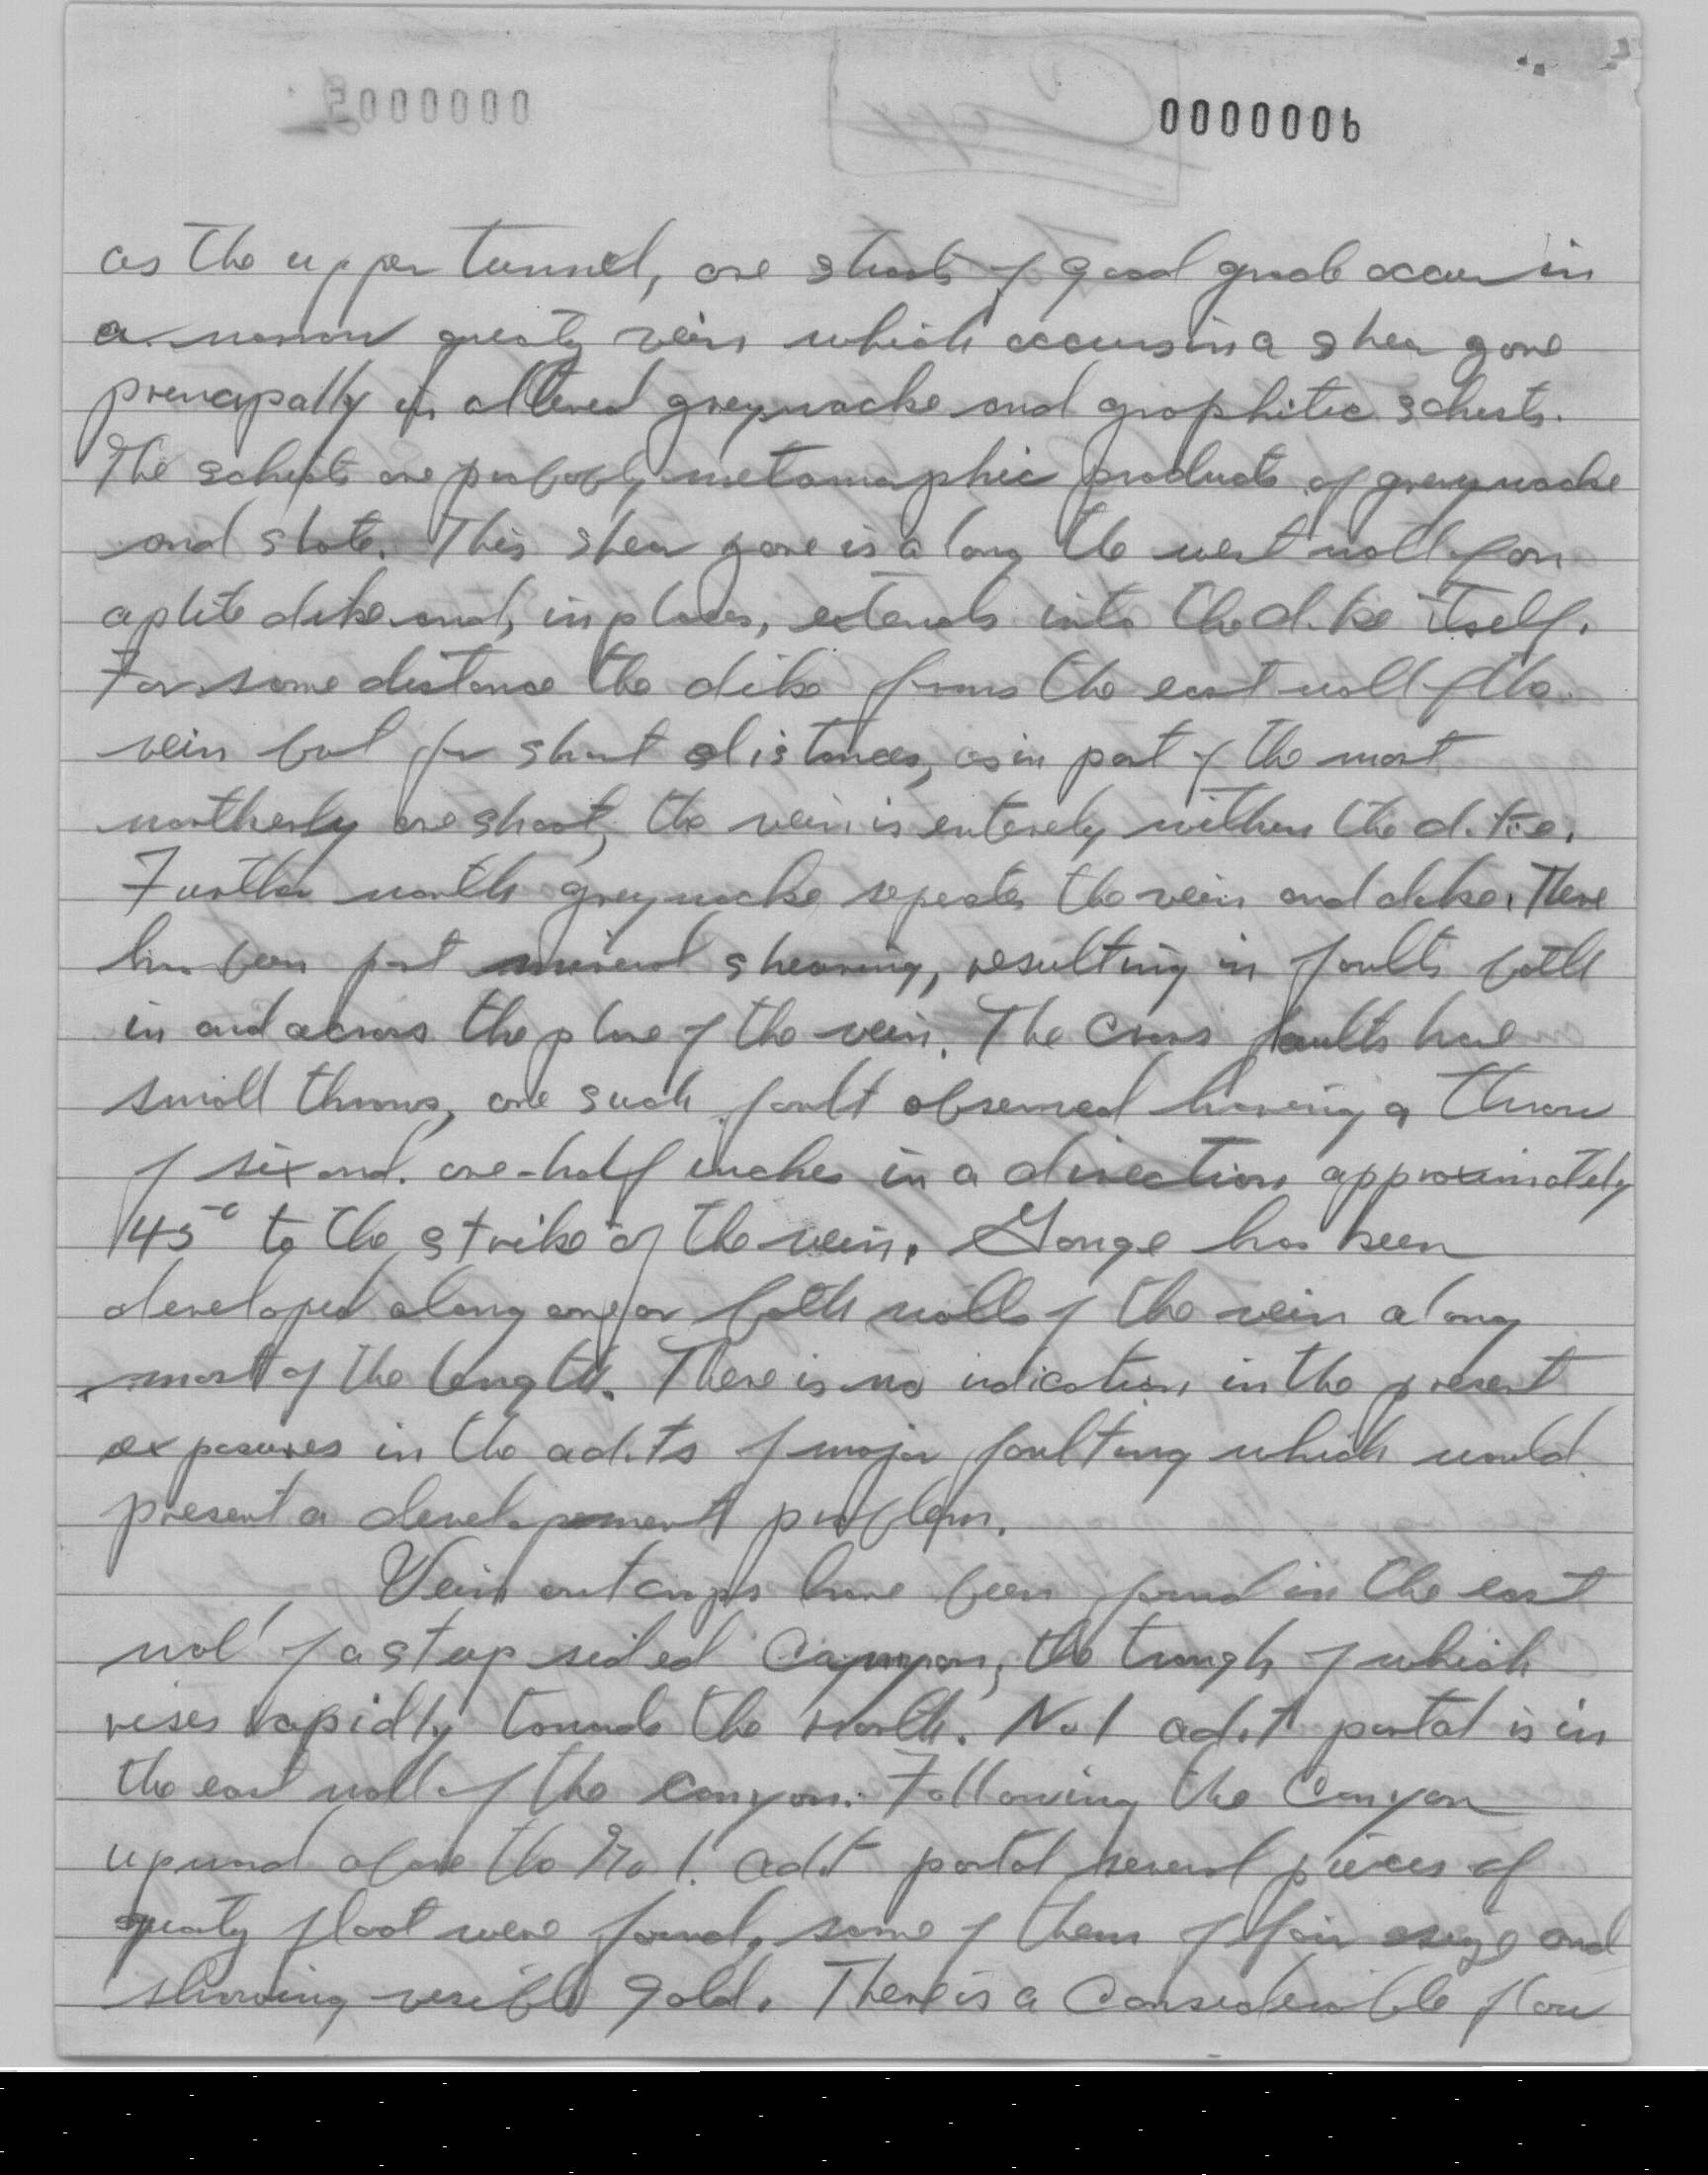 0000006
as the upper tunnel, ore shoots of good grade occur in
a narrow quartz vein which occurs in a shear zone
principally in altered greywacke and graphitic schists.
The schists are probably metamorphic products of greywacke
and slate. This shear zone is along the west wall of an
aplite dike and, in places, extends into the dike itself.
For some distance the dike forms the east wall of the
vein but for short distances, as in part of the most
northerly ore shoot, the vein is entirely within the dike.
Further north greywacke separates the vein and dike. There
has been post mineral shearing, resulting in faults both
in and across the plane of the vein. The cross faults have
small throws, one such fault observed having a throw
of six and one-half inches in a direction approximately
45° to the strike of the vein. Gouge has been
developed along one or both walls of the vein along
most of the length. There is no indication in the present
exposures in the adits of major faulting which would
present a developement problem.
Vein outcrops have been found in the east
wall of a steep sided canyon, the trough of which
rises rapidly towards the north. No 1 adit portal is in
the east wall of the canyon. Following the canyon
upward above the No 1. adit portal several pieces of
quartz float were found, some of them of fair size and
showing visible gold. There is a considerable flow